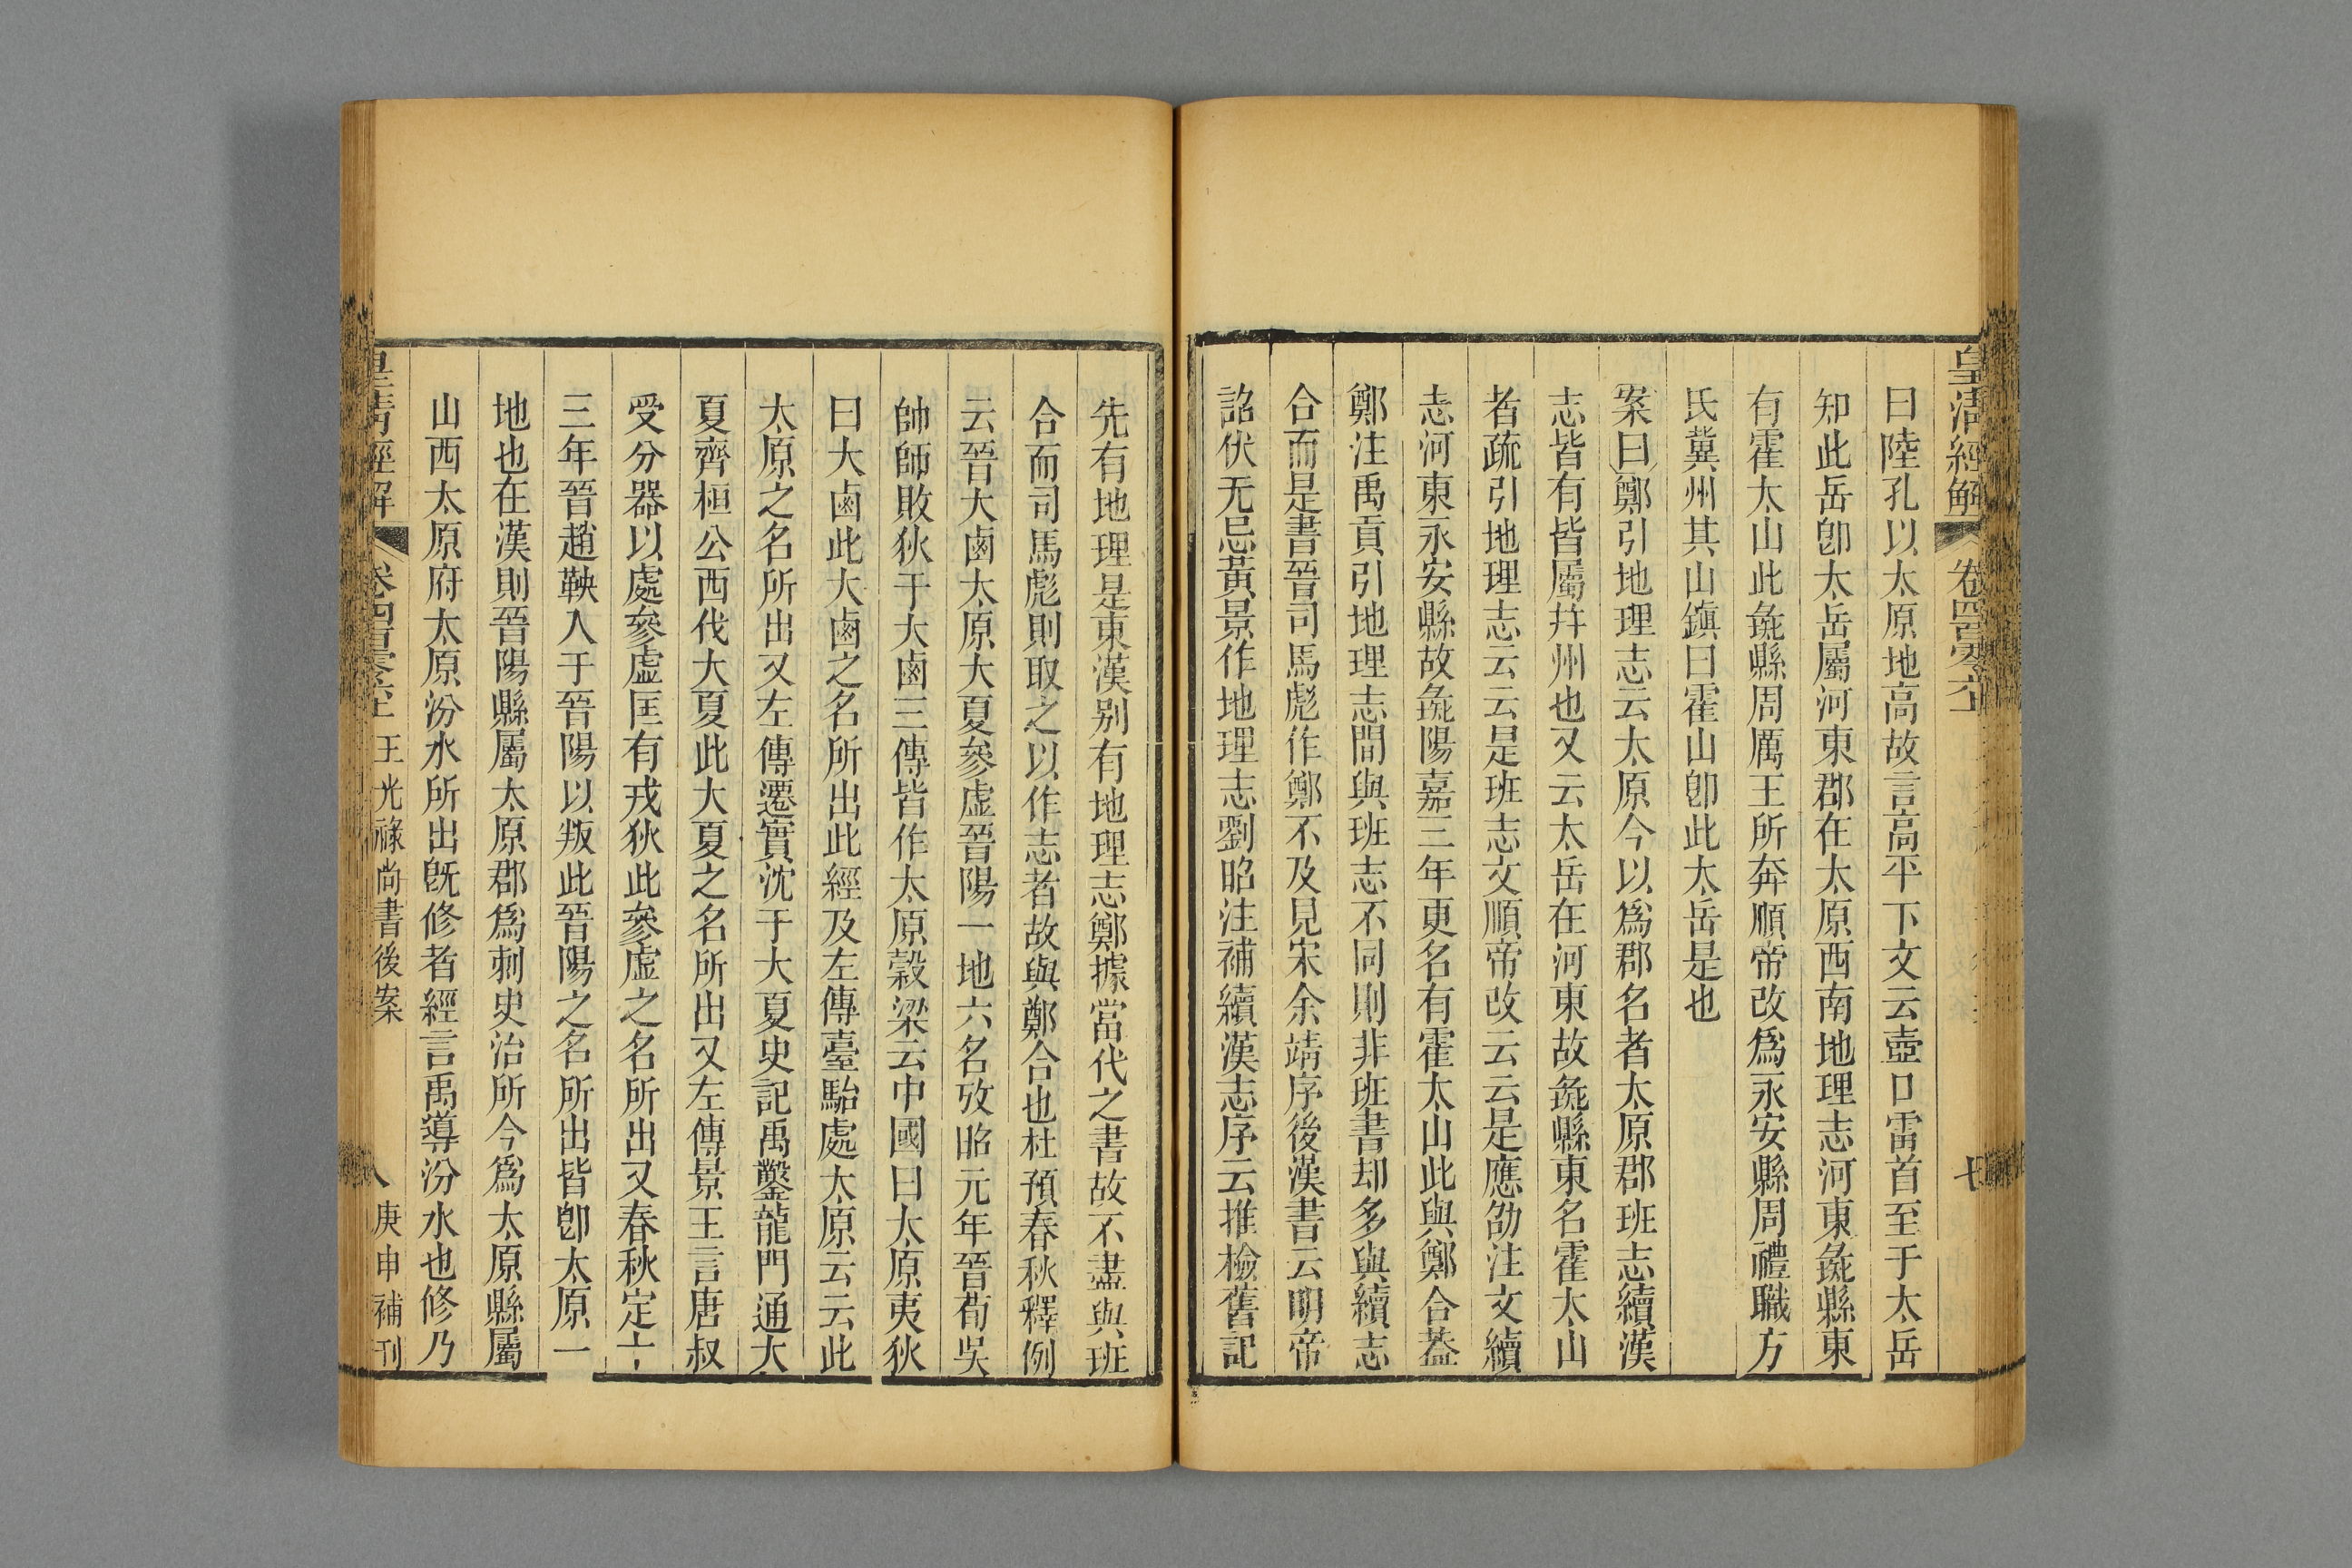 皇清經解 卷四百零六上 七
曰陸孔以太原地高故言高平下文云壺口雷首至于太岳
知此岳卽太岳屬河東郡在太原西南地理志河東彘縣東
有霍太山此彘縣周厲王所奔順帝改爲永安縣周禮職方
氏冀州其山鎭曰霍山卽此太岳是也
案曰鄭引地理志云太原今以爲郡名者太原郡班志續漢
志皆有皆屬幷州也又云太岳在河東故彘縣東名霍太山
者疏引地理志云云是班志文順帝改云云是應劭注文續
志河東永安縣故彘陽嘉三年更名有霍太山此與鄭合葢
鄭注禹貢引地理志間與班志不同則非班書却多與續志
合而是書晉司馬彪作鄭不及見宋余靖序後漢書云明帝
詔伏无忌黃景作地理志劉昭注補續漢志序云推檢舊記
先有地理是東漢别有地理志鄭據當代之書故不盡與班
合而司馬彪則取之以作志者故與鄭合也杜預春秋釋例
云晉大鹵太原大夏參虛晉陽一地六名攷昭元年晉荀吳
帥師敗狄于大鹵三傳皆作太原穀梁云中國曰太原夷狄
曰大鹵此大鹵之名所出此經及左傳臺駘處太原云云此
太原之名所出又左傳遷實沈于大夏史記禹鑿龍門通大
夏齊桓公西伐大夏此大夏之名所出又左傳景王言唐叔
受分器以處參虛匡有戎狄此參虛之名所出又春秋定十
三年晉趙鞅入于晉陽以叛此晉陽之名所出皆卽太原一
地也在漢則晉陽縣屬太原郡爲刺史治所今爲太原縣屬
山西太原府太原汾水所出旣修者經言禹導汾水也修乃
皇清經解 卷四百零六上 王光祿尚書後案 八 庚申補刊